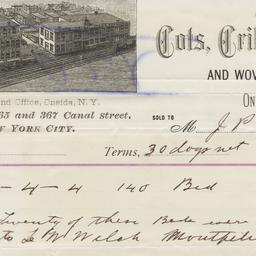 Cots, Crib
AND WOV
On
nd Office, Oneida, N. Y.
65 and 367 Canal street,
EW YORK CITY.
SOLD TO M. J. P
Terms, 30 days net
-4-4 140 Bed
Twenty of these Beds were
to L M Welch Montpeli